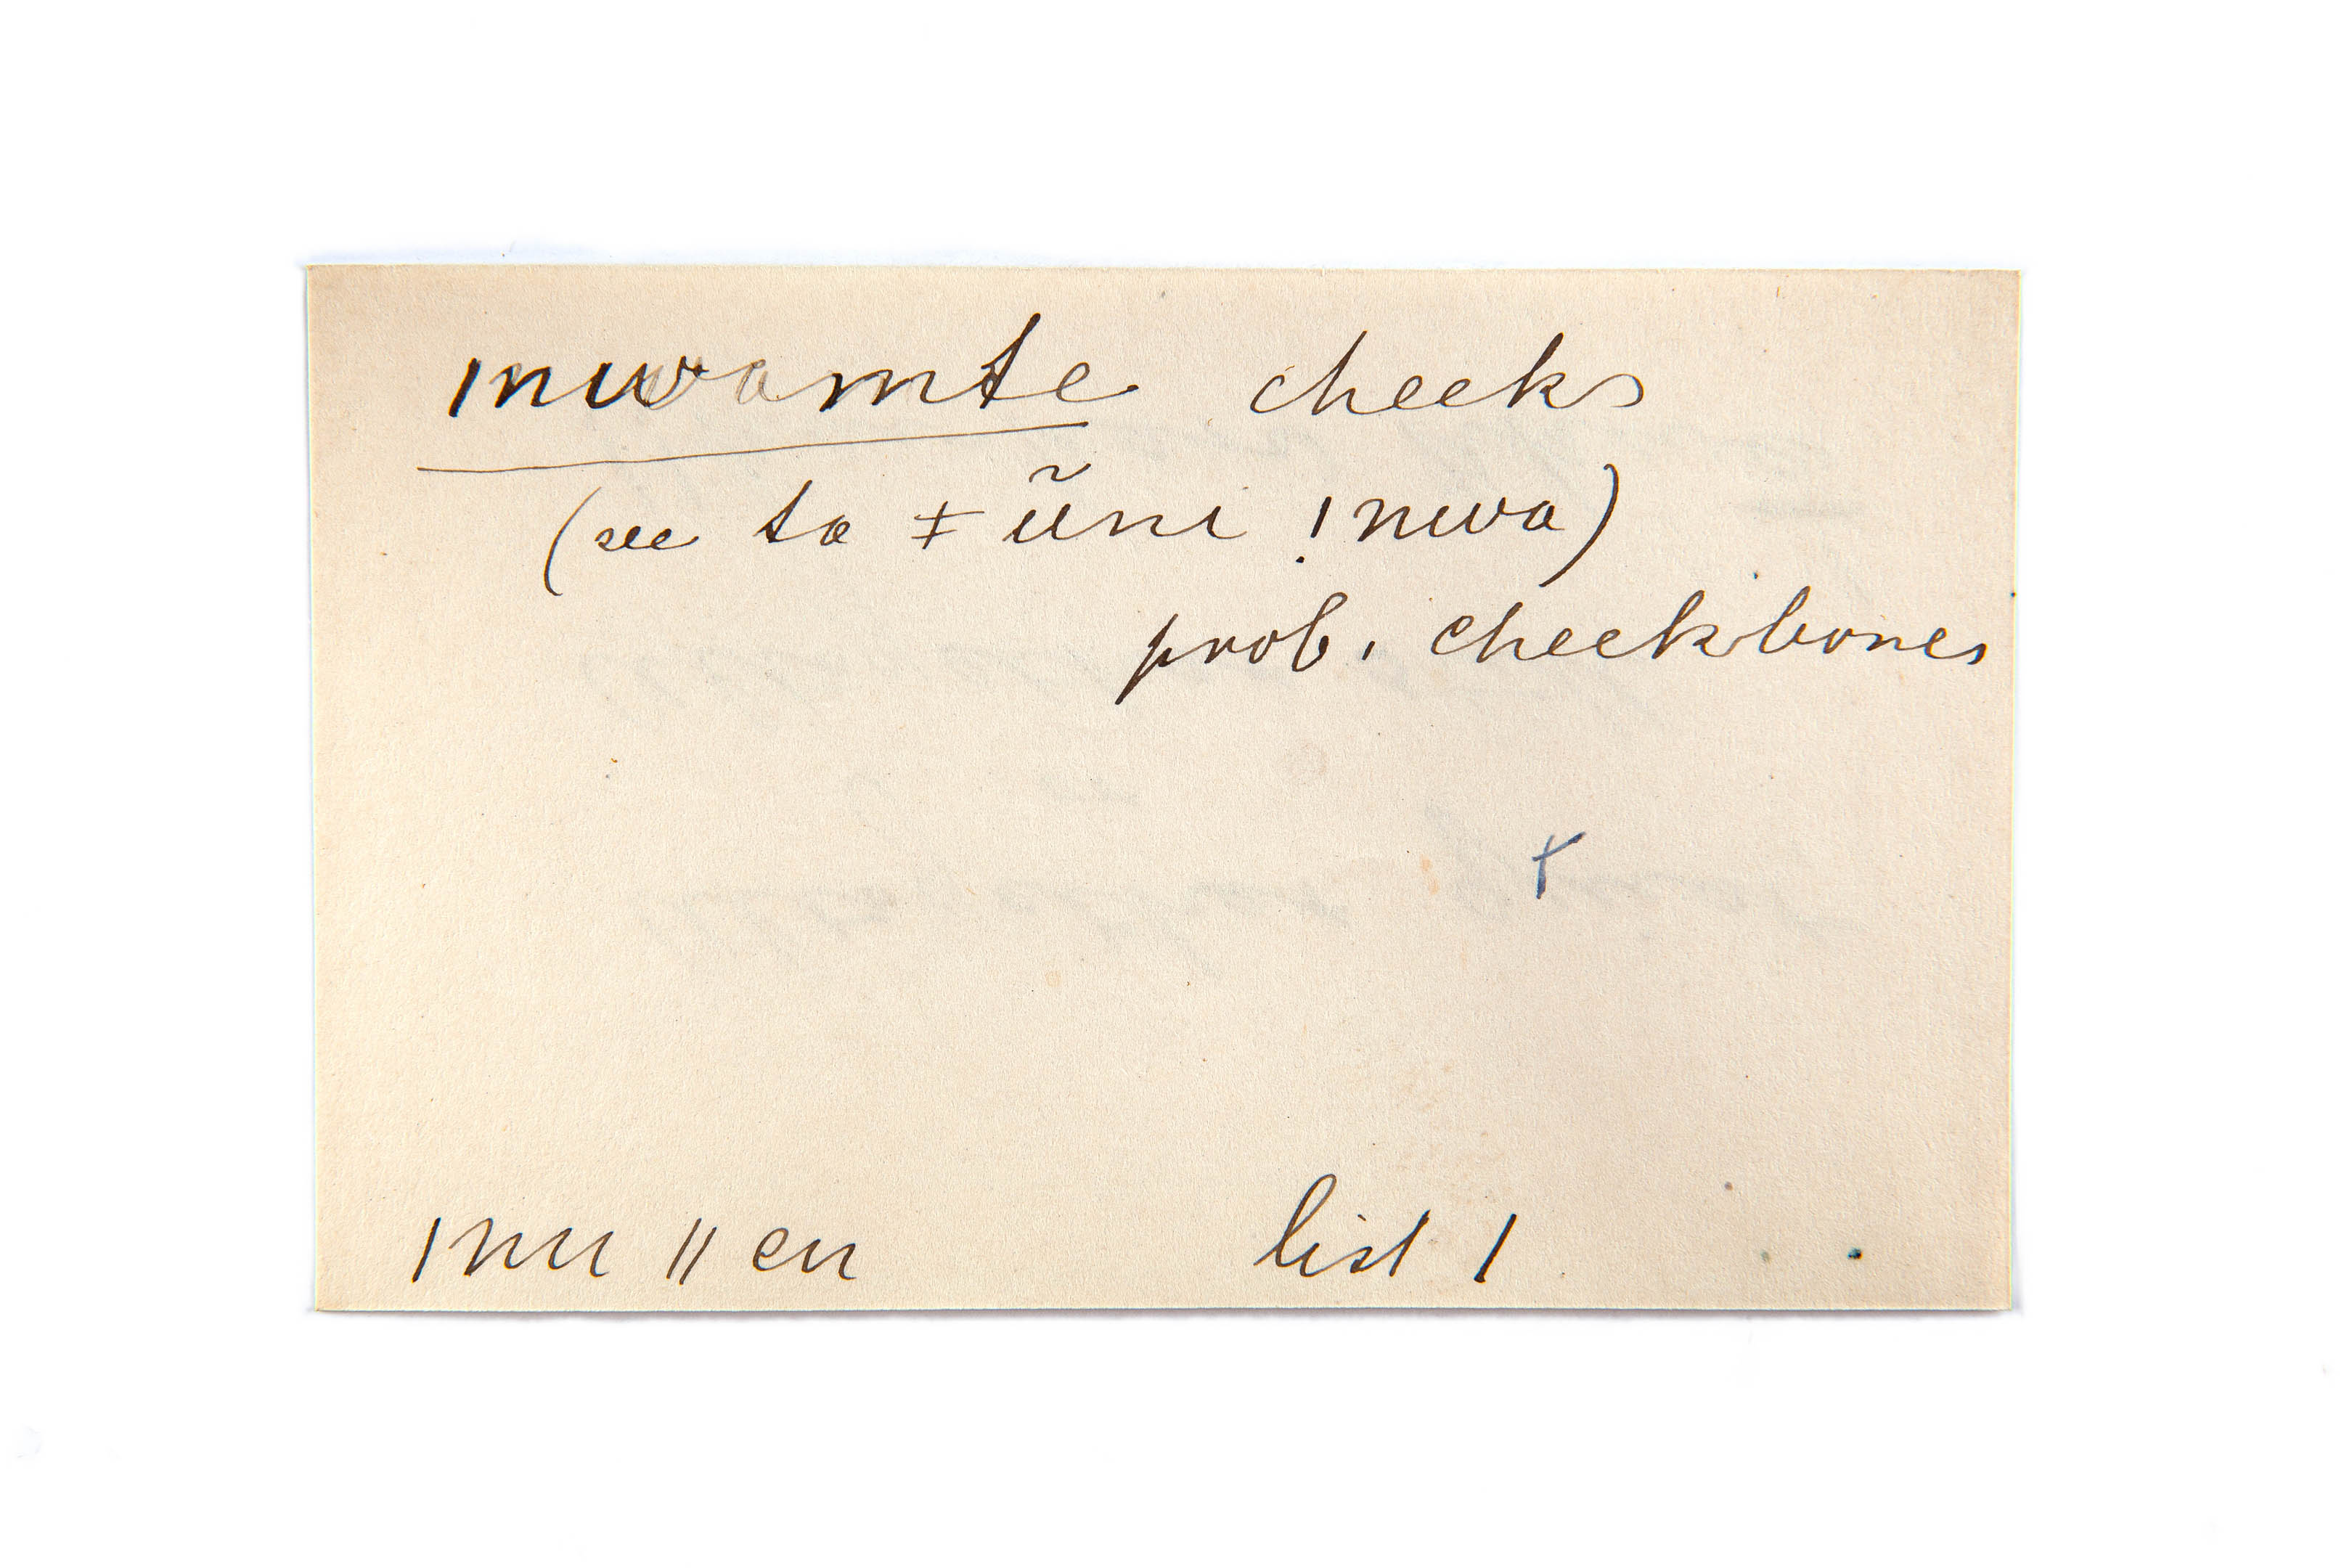 ǀnwamte cheeks
(see ta ǂũni ǃnwa)
prob. cheekbones
+
ǀnu ǁen list 1